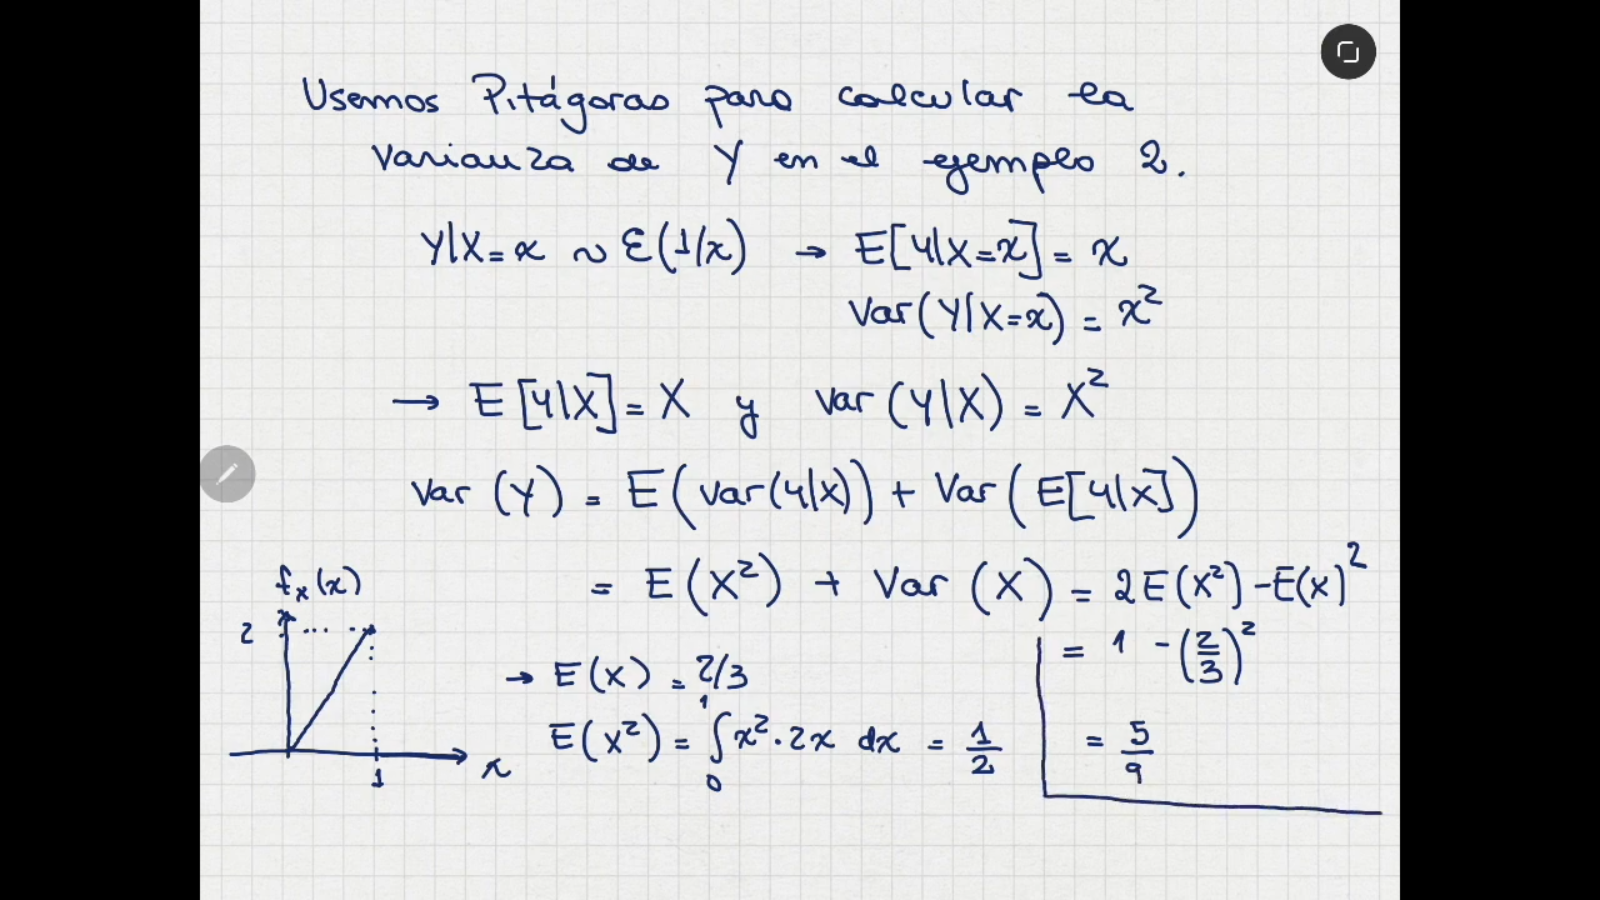 Usemos Pitágoras para calcular la
varianza de Y en el ejemplo 2.
Y|X=x ~ ℰ(1/x) → E[Y|X=x] = x
Var(Y|X=x) = x²
→ E[Y|X] = X y Var(Y|X) = X²
Var(Y) = E(Var(Y|X)) + Var(E[Y|X])
= E(X²) + Var(X) = 2E(X²) - E(X)²
= 1 - (2/3)²
= 5/9
fₓ(x)
2
1
x
→ E(X) = 2/3
E(X²) = ∫₀¹ x² · 2x dx = 1/2